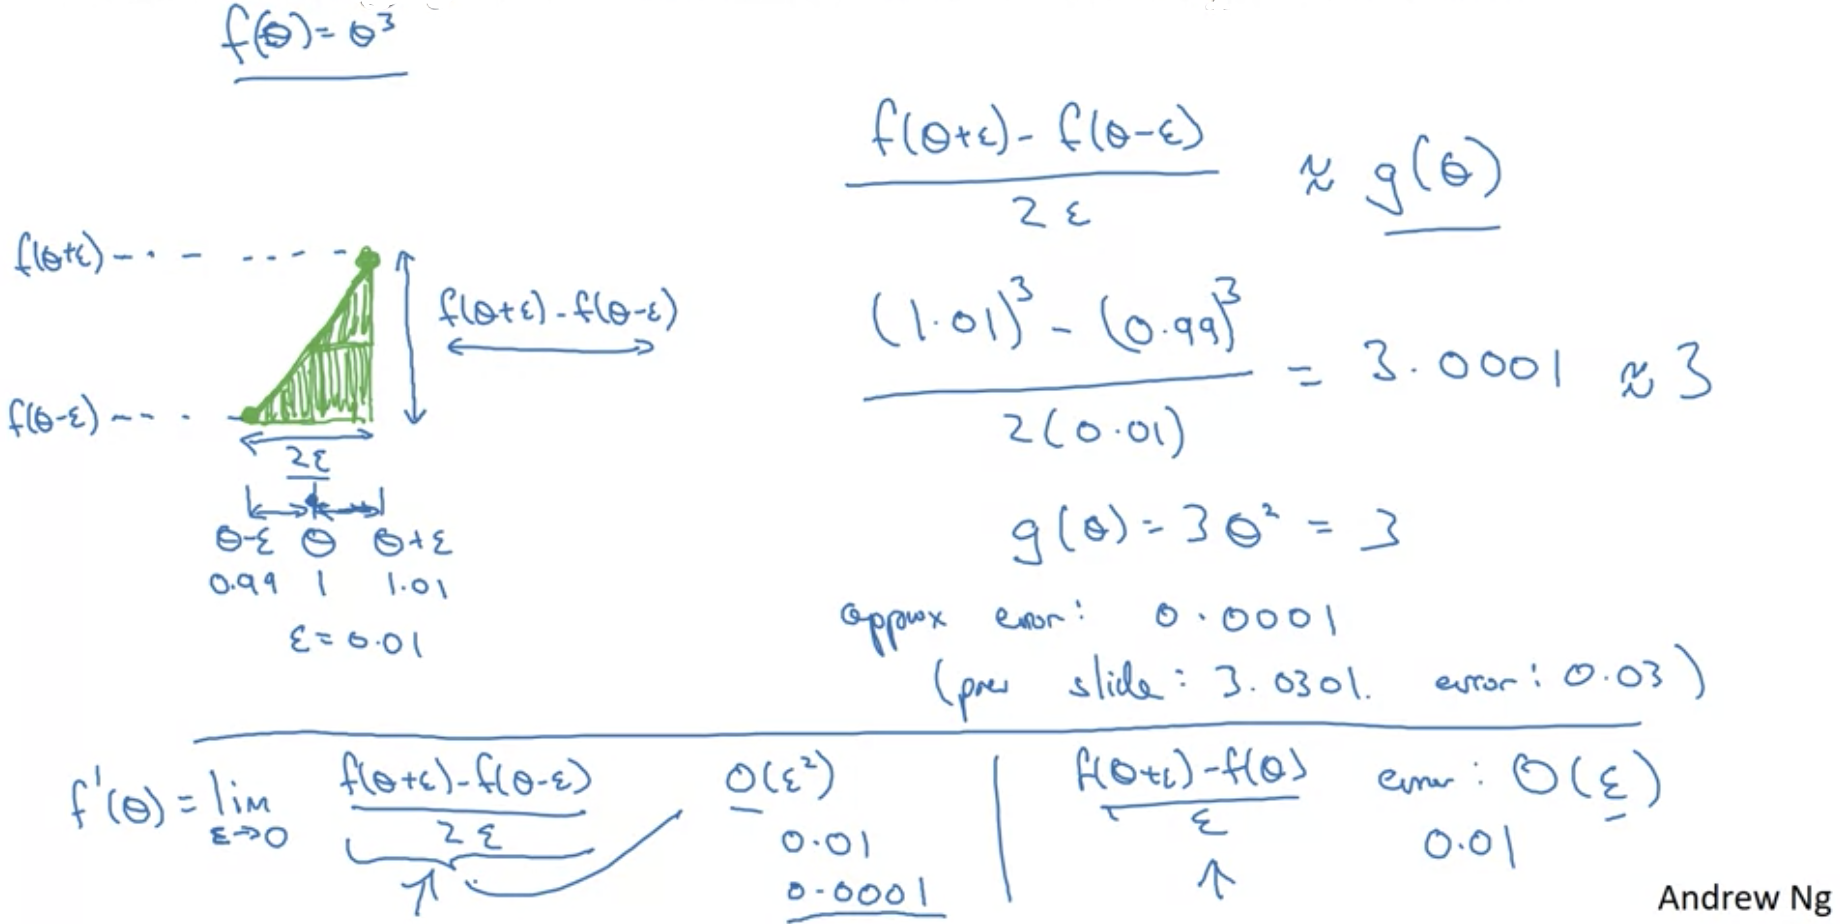 f(θ) = θ³
f(θ+ε) - f(θ-ε)
2ε
≈ g(θ)
f(θ+ε)
f(θ+ε) - f(θ-ε)
f(θ-ε)
2ε
θ-ε θ θ+ε
0.99 1 1.01
ε = 0.01
(1.01)³ - (0.99)³
2(0.01)
= 3.0001 ≈ 3
g(θ) = 3θ² = 3
approx error: 0.0001
(prev slide: 3.0301. error: 0.03)
f'(θ) = lim
ε→0
f(θ+ε) - f(θ-ε)
2ε
O(ε²)
0.01
0.0001
f(θ+ε) - f(θ)
ε
error: O(ε)
0.01
Andrew Ng